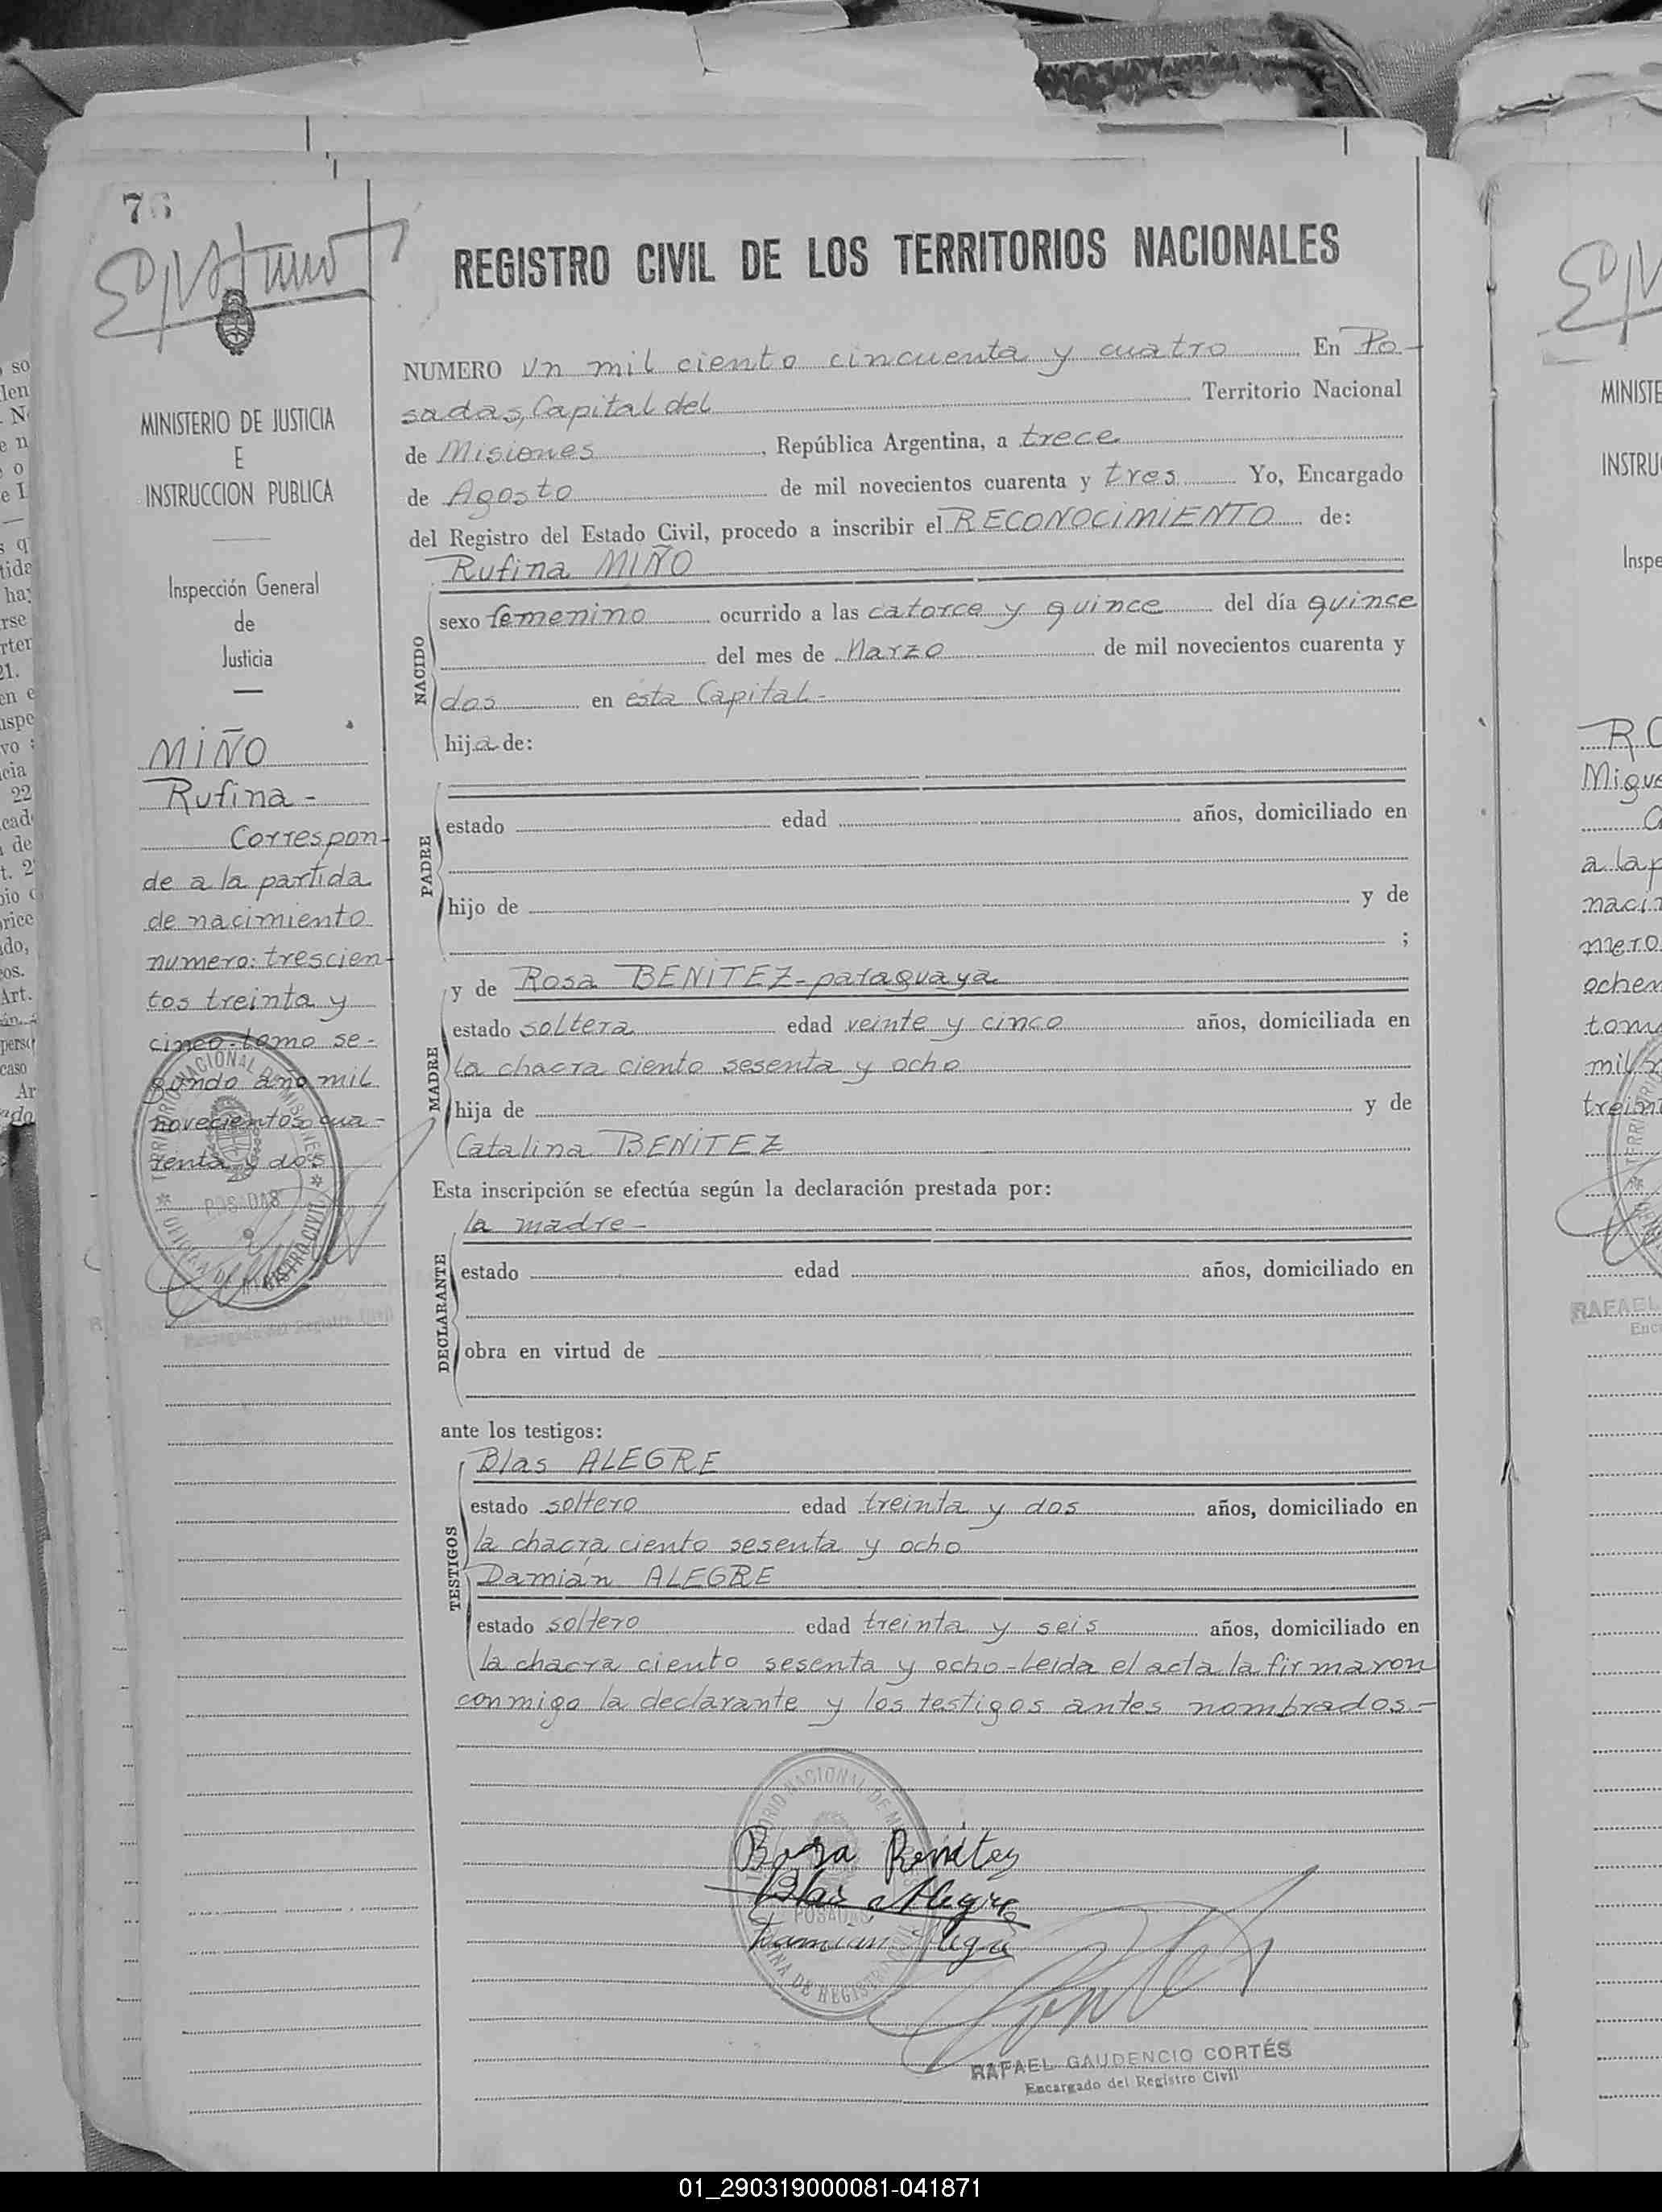 76
REGISTRO CIVIL DE LOS TERRITORIOS NACIONALES
MINISTERIO DE JUSTICIA
E
INSTRUCCION PUBLICA
Inspección General
de
Justicia
MIÑO
Rufina -
Correspon-
de a la partida
de nacimiento
numero: trescien-
tos treinta y
cinco-tomo se-
gundo año mil
novecientos cua-
renta y dos
POSADAS
Encargado del Registro Civil
NUMERO un mil ciento cincuenta y cuatro En Po-
sadas, Capital del Territorio Nacional
de Misiones, República Argentina, a trece
de Agosto de mil novecientos cuarenta y tres Yo, Encargado
del Registro del Estado Civil, procedo a inscribir el RECONOCIMIENTO de:
Rufina MIÑO
NACIDO
sexo femenino ocurrido a las catorce y quince del día quince
del mes de Marzo de mil novecientos cuarenta y
dos en esta Capital-
hija de:
PADRE
estado edad años, domiciliado en
hijo de y de
;
y de Rosa BENITEZ-paraguaya
MADRE
estado soltera edad veinte y cinco años, domiciliada en
la chacra ciento sesenta y ocho
hija de y de
Catalina BENITEZ
Esta inscripción se efectúa según la declaración prestada por:
la madre-
DECLARANTE
estado edad años, domiciliado en
obra en virtud de
ante los testigos:
TESTIGOS
Blas ALEGRE
estado soltero edad treinta y dos años, domiciliado en
la chacra ciento sesenta y ocho
Damián ALEGRE
estado soltero edad treinta y seis años, domiciliado en
la chacra ciento sesenta y ocho-leida el acta la firmaron
conmigo la declarante y los testigos antes nombrados.-
Rosa Benitez
Blas Alegre
Damian Alegre
POSADAS
RAFAEL GAUDENCIO CORTÉS
Encargado del Registro Civil
01_290319000081-041871